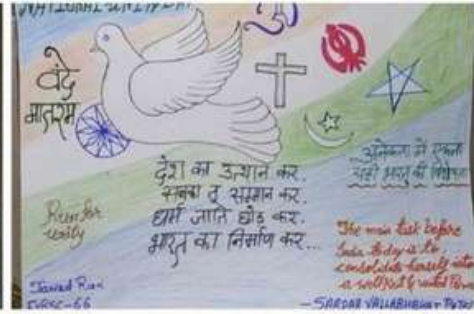 NATIONAL UNITY DAY
वंदे
मातरम्
देश का उत्थान कर.
सबका तू सम्मान कर.
धर्म जाति छोड़ कर.
भारत का निर्माण कर...
अनेकता में एकता
यही भारत की विशेषता
Run for
unity
The main task before
India today is to
consolidate herself into
a well knit & united
- SARDAR VALLABHBHAI PATEL
-66